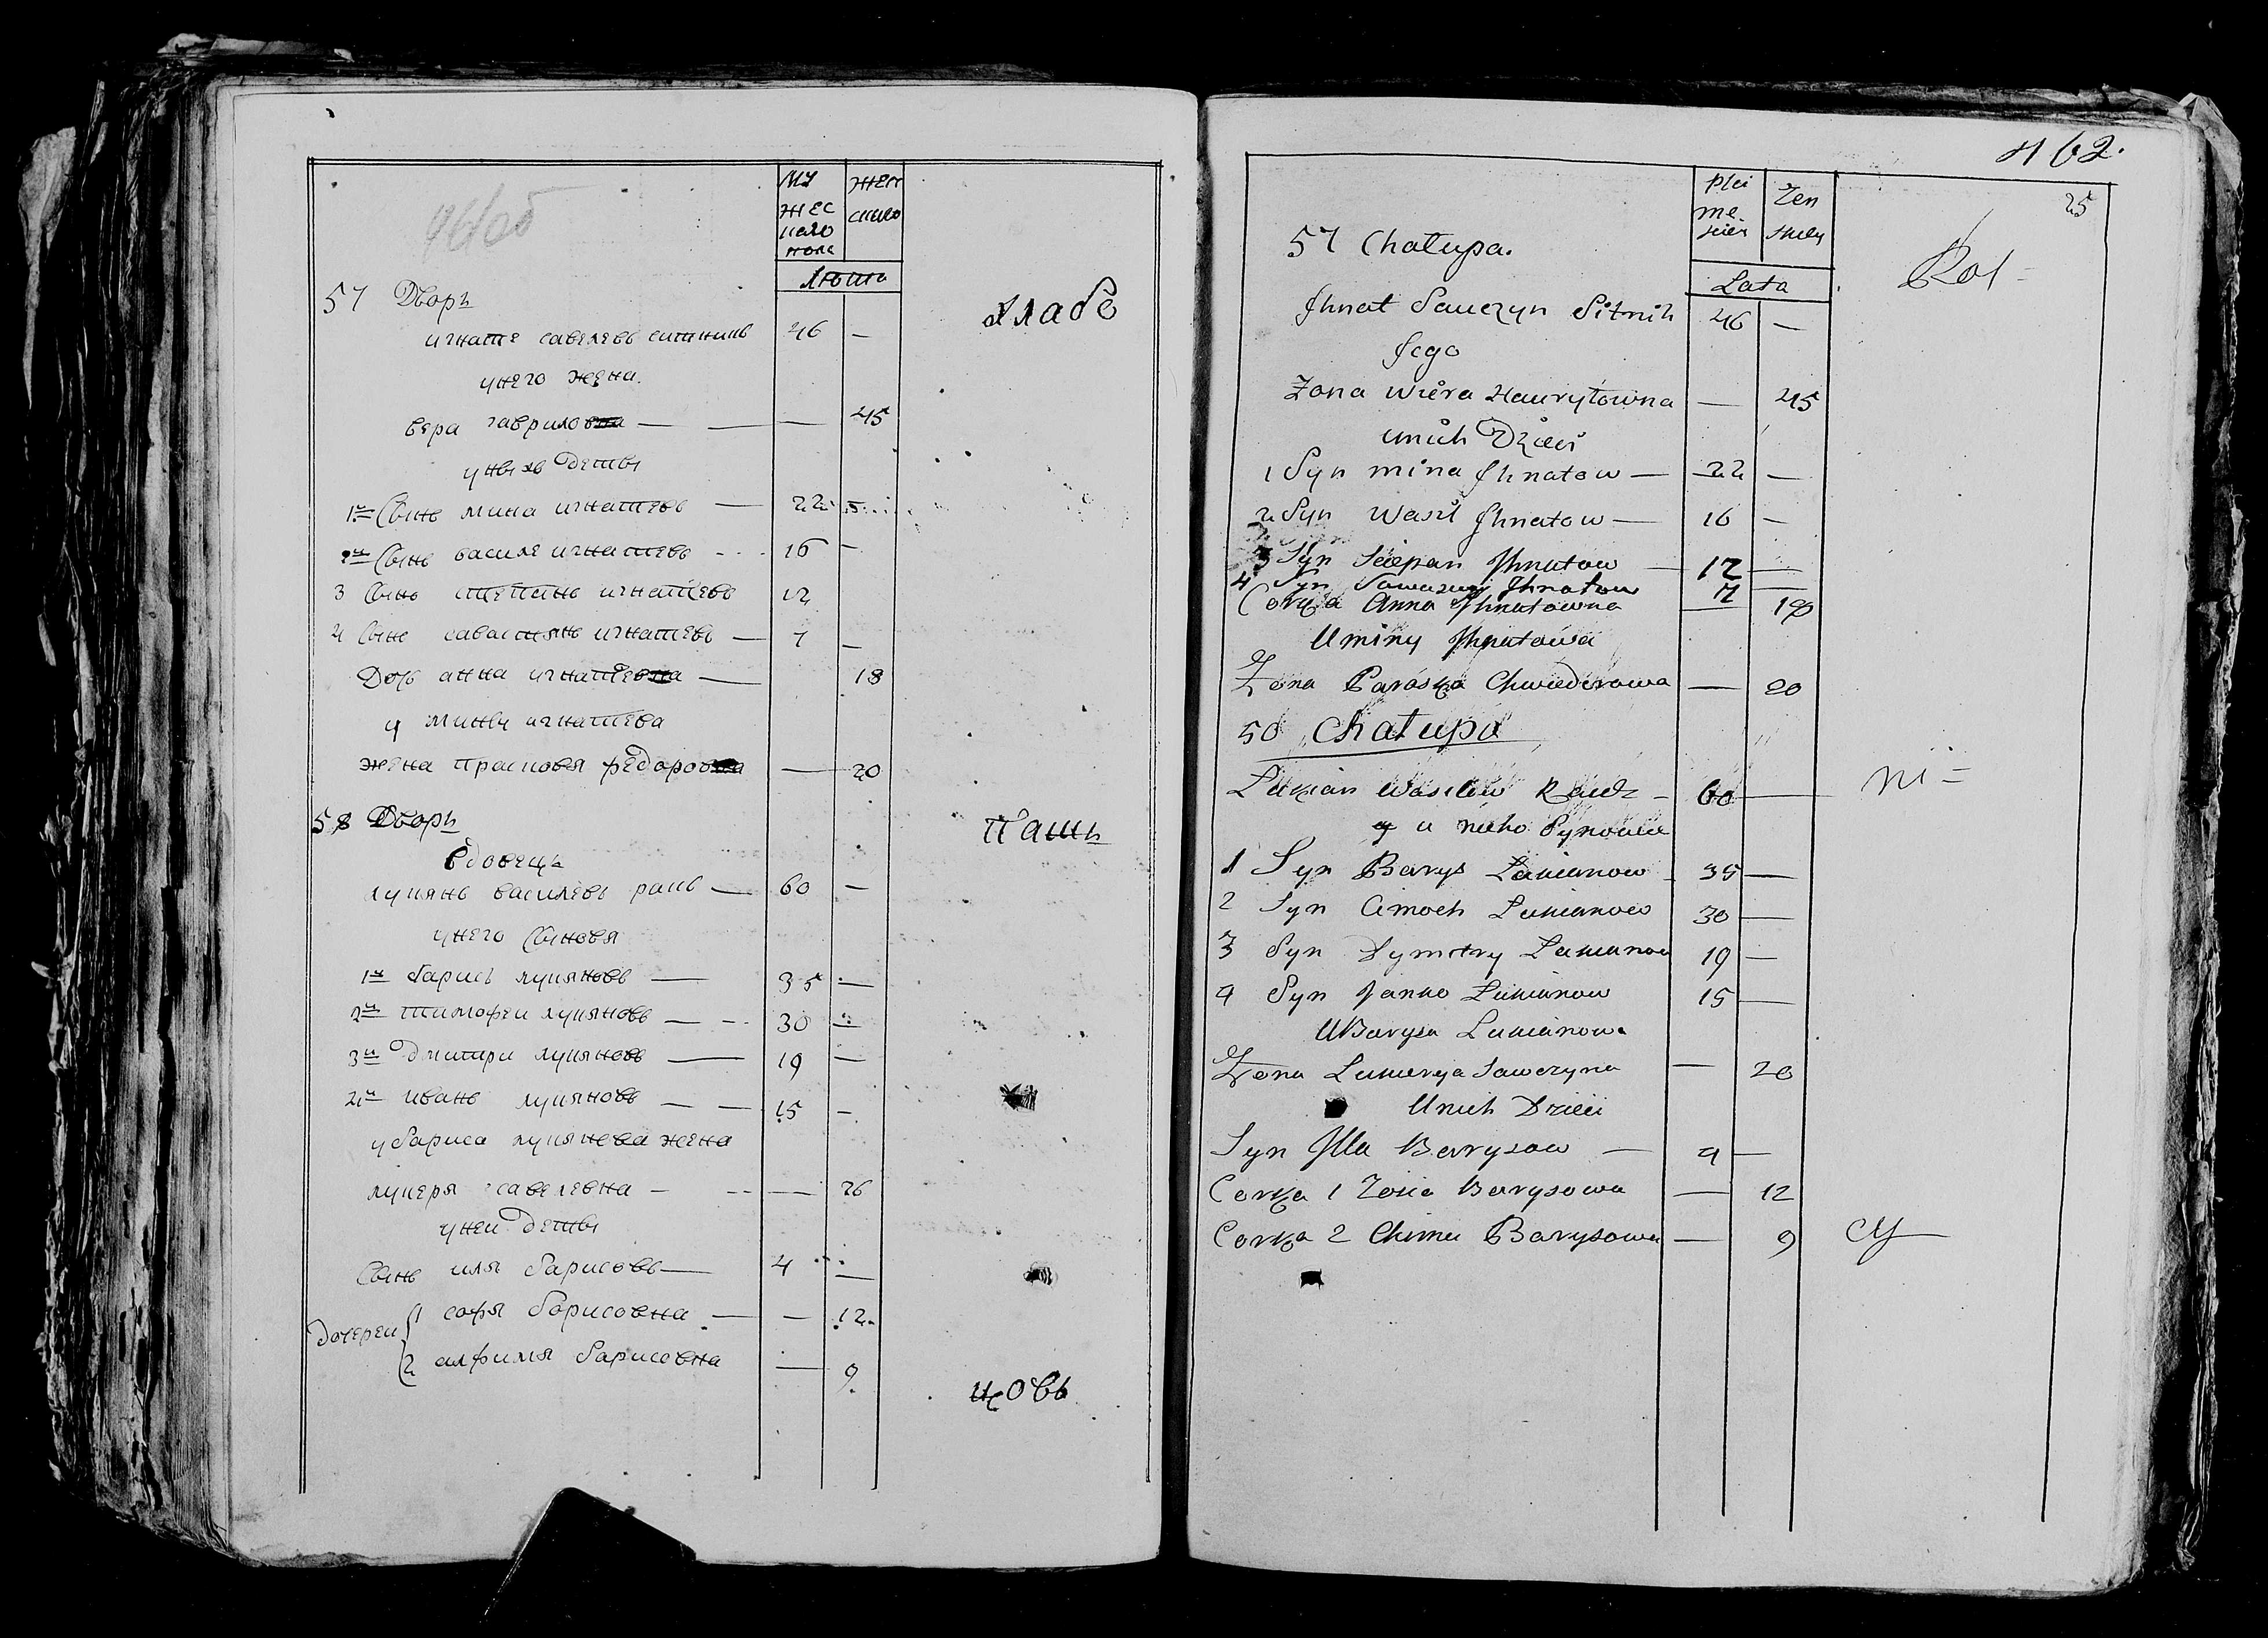 му
жес
каго
пола
жен
скаго
Люта
57 Дворъ
хлабо
игнате савелевъ ситникъ 46 —
унего жена
вера гавриловна — — 45
унихъ детвы
1й Сынъ мина игнатевъ — 22
2й Сынъ василе игнатевъ 16 —
3 Сынъ степанъ игнатевъ 12
4 Сынъ савастянъ игнатевъ — 7 —
Дочь анна игнатевна — 18
у мины игнатева
жена прасковя федоровна — 20
58 Дворъ
пашъ
вдовецъ
лукянъ василевъ ракъ — 60 —
унего сыновя
1й барисъ лукяновъ — 35 —
2й тимофеи лукяновъ — 30 —
3й дмитри лукяновъ — 19 —
4й иванъ лукяновъ — 15 —
у бариса лукянова жена
лукеря савелевна — — 26
унеи детвы
Сынъ иля барисовъ — 4 —
дочереи
1 софя борисовна — — 12
2 алфимя барисовна — 9
цовъ
462.
25
plci
me.
skiey
Żen
skiey
Lata
57 Chałupa.
Rol=
Jhnat Sauczyn Sitnik 46 —
Jego
Żona Wiera Haurylowna — 45
unich Dzieci
1 Syn mina Jhnatow — 22 —
2 Syn Wasil Jhnatow — 16 —
3 Syn Sciepan Jhnatow — 12 —
4 Syn Sawasciej Jhnatow 7 —
Corka Anna Jhnatowna — 18
Uminy Jhnatowa
Żona Paraska Chwiedorowa — 20
58 Chałupa
ni=
Lukian Wasilew Rak — 60 —
u nieho Synowie
1 Syn Barys Lukianow — 35 —
2 Syn Cimoch Lukianow 30 —
3 Syn Dymitry Lukianow 19 —
4 Syn Janko Lukianow 15 —
UBarysa Lukianowa
Żona Lukierya Sawczyna — 26
Unich Dzieci
Syn Jlla Barysow — 4 —
Corka 1 Zosia Barysowa — 12
Corka 2 Chima Barysowa — 9
cy